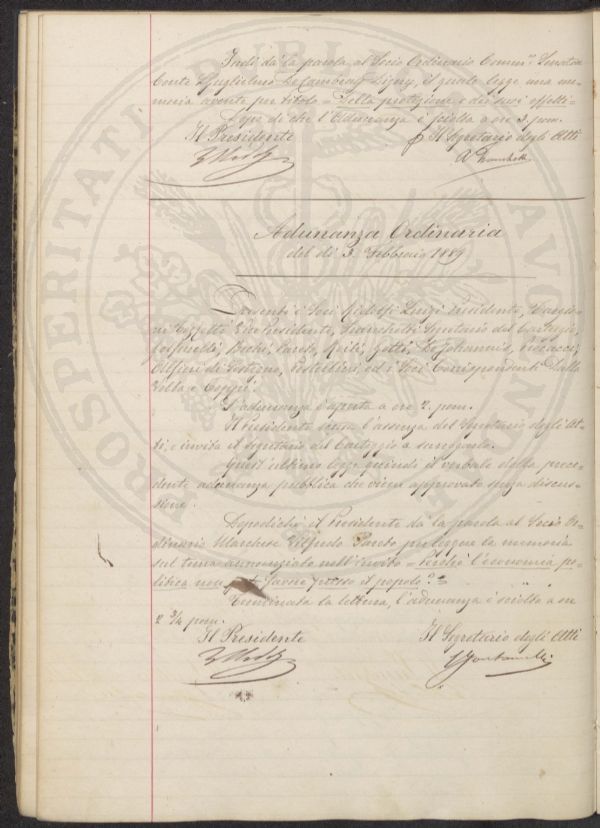 Indi dà la parola al Socio Ordinario Comm.e Senatore
Conte Guglielmo De Cambray Digny, il quale legge una me=
moria avente per titolo = Della protezione e dei suoi effetti =
Dopo di che l'Adunanza è sciolta a ore 3. pom.
Il Presidente Il Segretario degli Atti
Adunanza Ordinaria
del dì 3. Febbraio 1889
Presenti i Soci Ridolfi Luigi Presidente,
Vice Presidente, Segretario del Carteggio,
Bechi, Pareto, Gotti, De Johannis,
ed i Soci Corrispondenti Dalla
Volta e Coppi.
L'adunanza è aperta a ore 2. pom.
Il Presidente scusa l'assenza del Segretario degli At=
ti, e invita il Segretario del Carteggio a surrogarlo.
Quest'ultimo legge quindi il verbale della prece=
dente adunanza pubblica che viene approvato senza discus=
sione.
Dopodiché il Presidente dà la parola al Socio Or=
dinario Marchese Vilfredo Pareto per leggere la memoria
sul tema annunziato nell'invito = Perché l'economia po=
litica non favore presso il popolo? =
Terminata la lettura, l'adunanza è sciolta a ore
2 3/4 pom.
Il Presidente Il Segretario degli Atti
PROSPERITATI PUBLICAE